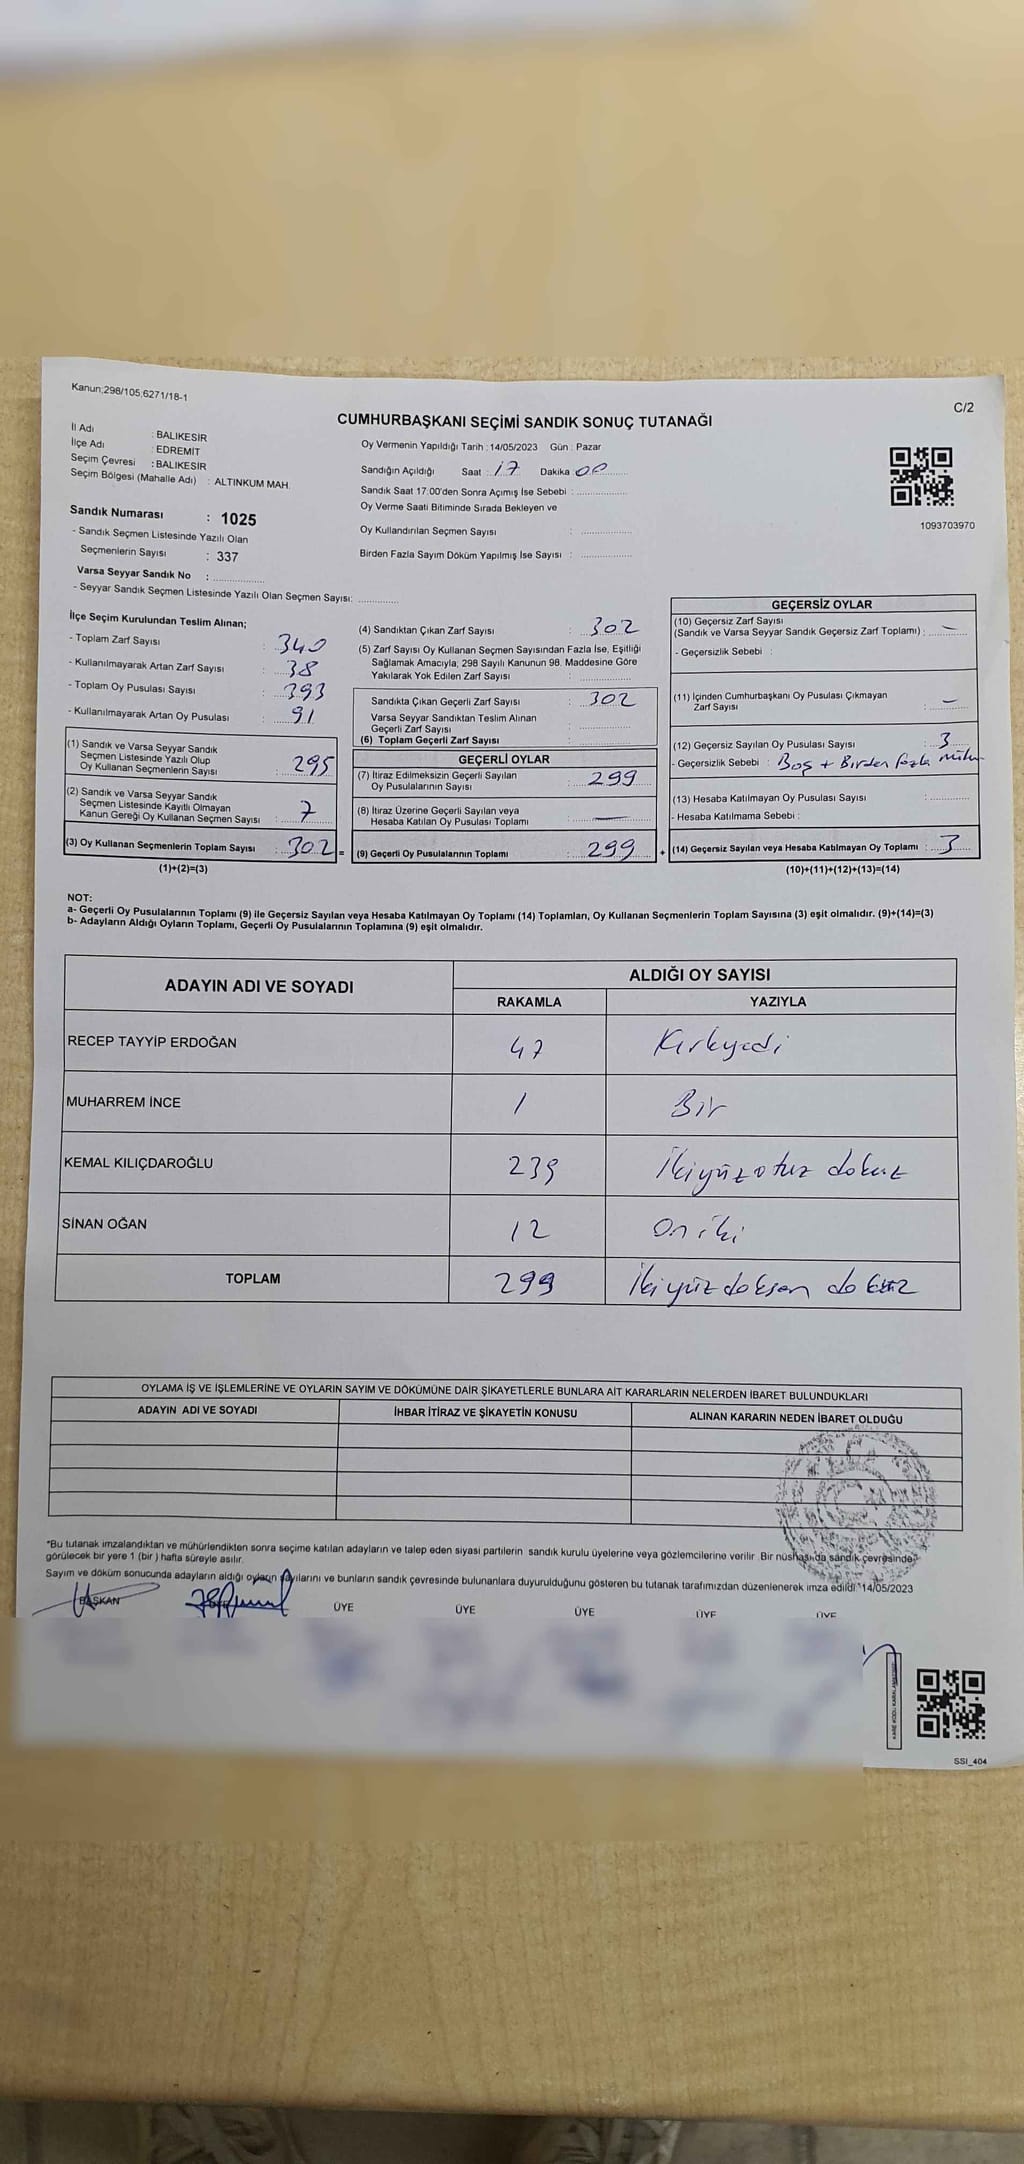 Kanun;298/105,6271/18-1
C/2
CUMHURBAŞKANI SEÇİMİ SANDIK SONUÇ TUTANAĞI
İl Adı : BALIKESİR
İlçe Adı : EDREMİT
Seçim Çevresi : BALIKESİR
Seçim Bölgesi (Mahalle Adı) : ALTINKUM MAH.
Sandık Numarası : 1025
- Sandık Seçmen Listesinde Yazılı Olan
Seçmenlerin Sayısı : 337
Varsa Seyyar Sandık No : ..................
- Seyyar Sandık Seçmen Listesinde Yazılı Olan Seçmen Sayısı: .............
Oy Vermenin Yapıldığı Tarih : 14/05/2023 Gün : Pazar
Sandığın Açıldığı Saat : 17 Dakika 00
Sandık Saat 17.00'den Sonra Açımış İse Sebebi : ................
Oy Verme Saati Bitiminde Sırada Bekleyen ve
Oy Kullandırılan Seçmen Sayısı : ................
Birden Fazla Sayım Döküm Yapılmış İse Sayısı : ................
1093703970
İlçe Seçim Kurulundan Teslim Alınan;
- Toplam Zarf Sayısı : 340
- Kullanılmayarak Artan Zarf Sayısı : 38
- Toplam Oy Pusulası Sayısı : 393
- Kullanılmayarak Artan Oy Pusulası : 91
(1) Sandık ve Varsa Seyyar Sandık
Seçmen Listesinde Yazılı Olup
Oy Kullanan Seçmenlerin Sayısı : 295
(2) Sandık ve Varsa Seyyar Sandık
Seçmen Listesinde Kayıtlı Olmayan
Kanun Gereği Oy Kullanan Seçmen Sayısı : 7
(3) Oy Kullanan Seçmenlerin Toplam Sayısı : 302 =
(1)+(2)=(3)
(4) Sandıktan Çıkan Zarf Sayısı : 302
(5) Zarf Sayısı Oy Kullanan Seçmen Sayısından Fazla İse, Eşitliği
Sağlamak Amacıyla; 298 Sayılı Kanunun 98. Maddesine Göre
Yakılarak Yok Edilen Zarf Sayısı : ................
Sandıkta Çıkan Geçerli Zarf Sayısı : 302
Varsa Seyyar Sandıktan Teslim Alınan
Geçerli Zarf Sayısı : ................
(6) Toplam Geçerli Zarf Sayısı : ................
GEÇERLİ OYLAR
(7) İtiraz Edilmeksizin Geçerli Sayılan
Oy Pusulalarının Sayısı : 299
(8) İtiraz Üzerine Geçerli Sayılan veya
Hesaba Katılan Oy Pusulası Toplamı : —
(9) Geçerli Oy Pusulalarının Toplamı : 299 +
GEÇERSİZ OYLAR
(10) Geçersiz Zarf Sayısı
(Sandık ve Varsa Seyyar Sandık Geçersiz Zarf Toplamı) : —
- Geçersizlik Sebebi :
(11) İçinden Cumhurbaşkanı Oy Pusulası Çıkmayan
Zarf Sayısı : —
(12) Geçersiz Sayılan Oy Pusulası Sayısı : 3
- Geçersizlik Sebebi : Boş + Birden fazla
(13) Hesaba Katılmayan Oy Pusulası Sayısı : ............
- Hesaba Katılmama Sebebi :
(14) Geçersiz Sayılan veya Hesaba Katılmayan Oy Toplamı : 3
(10)+(11)+(12)+(13)=(14)
NOT:
a- Geçerli Oy Pusulalarının Toplamı (9) ile Geçersiz Sayılan veya Hesaba Katılmayan Oy Toplamı (14) Toplamları, Oy Kullanan Seçmenlerin Toplam Sayısına (3) eşit olmalıdır. (9)+(14)=(3)
b- Adayların Aldığı Oyların Toplamı, Geçerli Oy Pusulalarının Toplamına (9) eşit olmalıdır.
ADAYIN ADI VE SOYADI ALDIĞI OY SAYISI
RAKAMLA YAZIYLA
RECEP TAYYİP ERDOĞAN 47 Kırkyedi
MUHARREM İNCE 1 Bir
KEMAL KILIÇDAROĞLU 239 İkiyüzotuz dokuz
SİNAN OĞAN 12 On iki
TOPLAM 299 İkiyüzdoksan dokuz
OYLAMA İŞ VE İŞLEMLERİNE VE OYLARIN SAYIM VE DÖKÜMÜNE DAİR ŞİKAYETLERLE BUNLARA AİT KARARLARIN NELERDEN İBARET BULUNDUKLARI
ADAYIN ADI VE SOYADI İHBAR İTİRAZ VE ŞİKAYETİN KONUSU ALINAN KARARIN NEDEN İBARET OLDUĞU
*Bu tutanak imzalandıktan ve mühürlendikten sonra seçime katılan adayların ve talep eden siyasi partilerin sandık kurulu üyelerine veya gözlemcilerine verilir. Bir nüshası da sandık çevresinde
görülecek bir yere 1 (bir ) hafta süreyle asılır.
Sayım ve döküm sonucunda adayların aldığı oyların sayılarını ve bunların sandık çevresinde bulunanlara duyurulduğunu gösteren bu tutanak tarafımızdan düzenlenerek imza edildi. 14/05/2023
BAŞKAN ÜYE ÜYE ÜYE ÜYE ÜYE
SSI_404